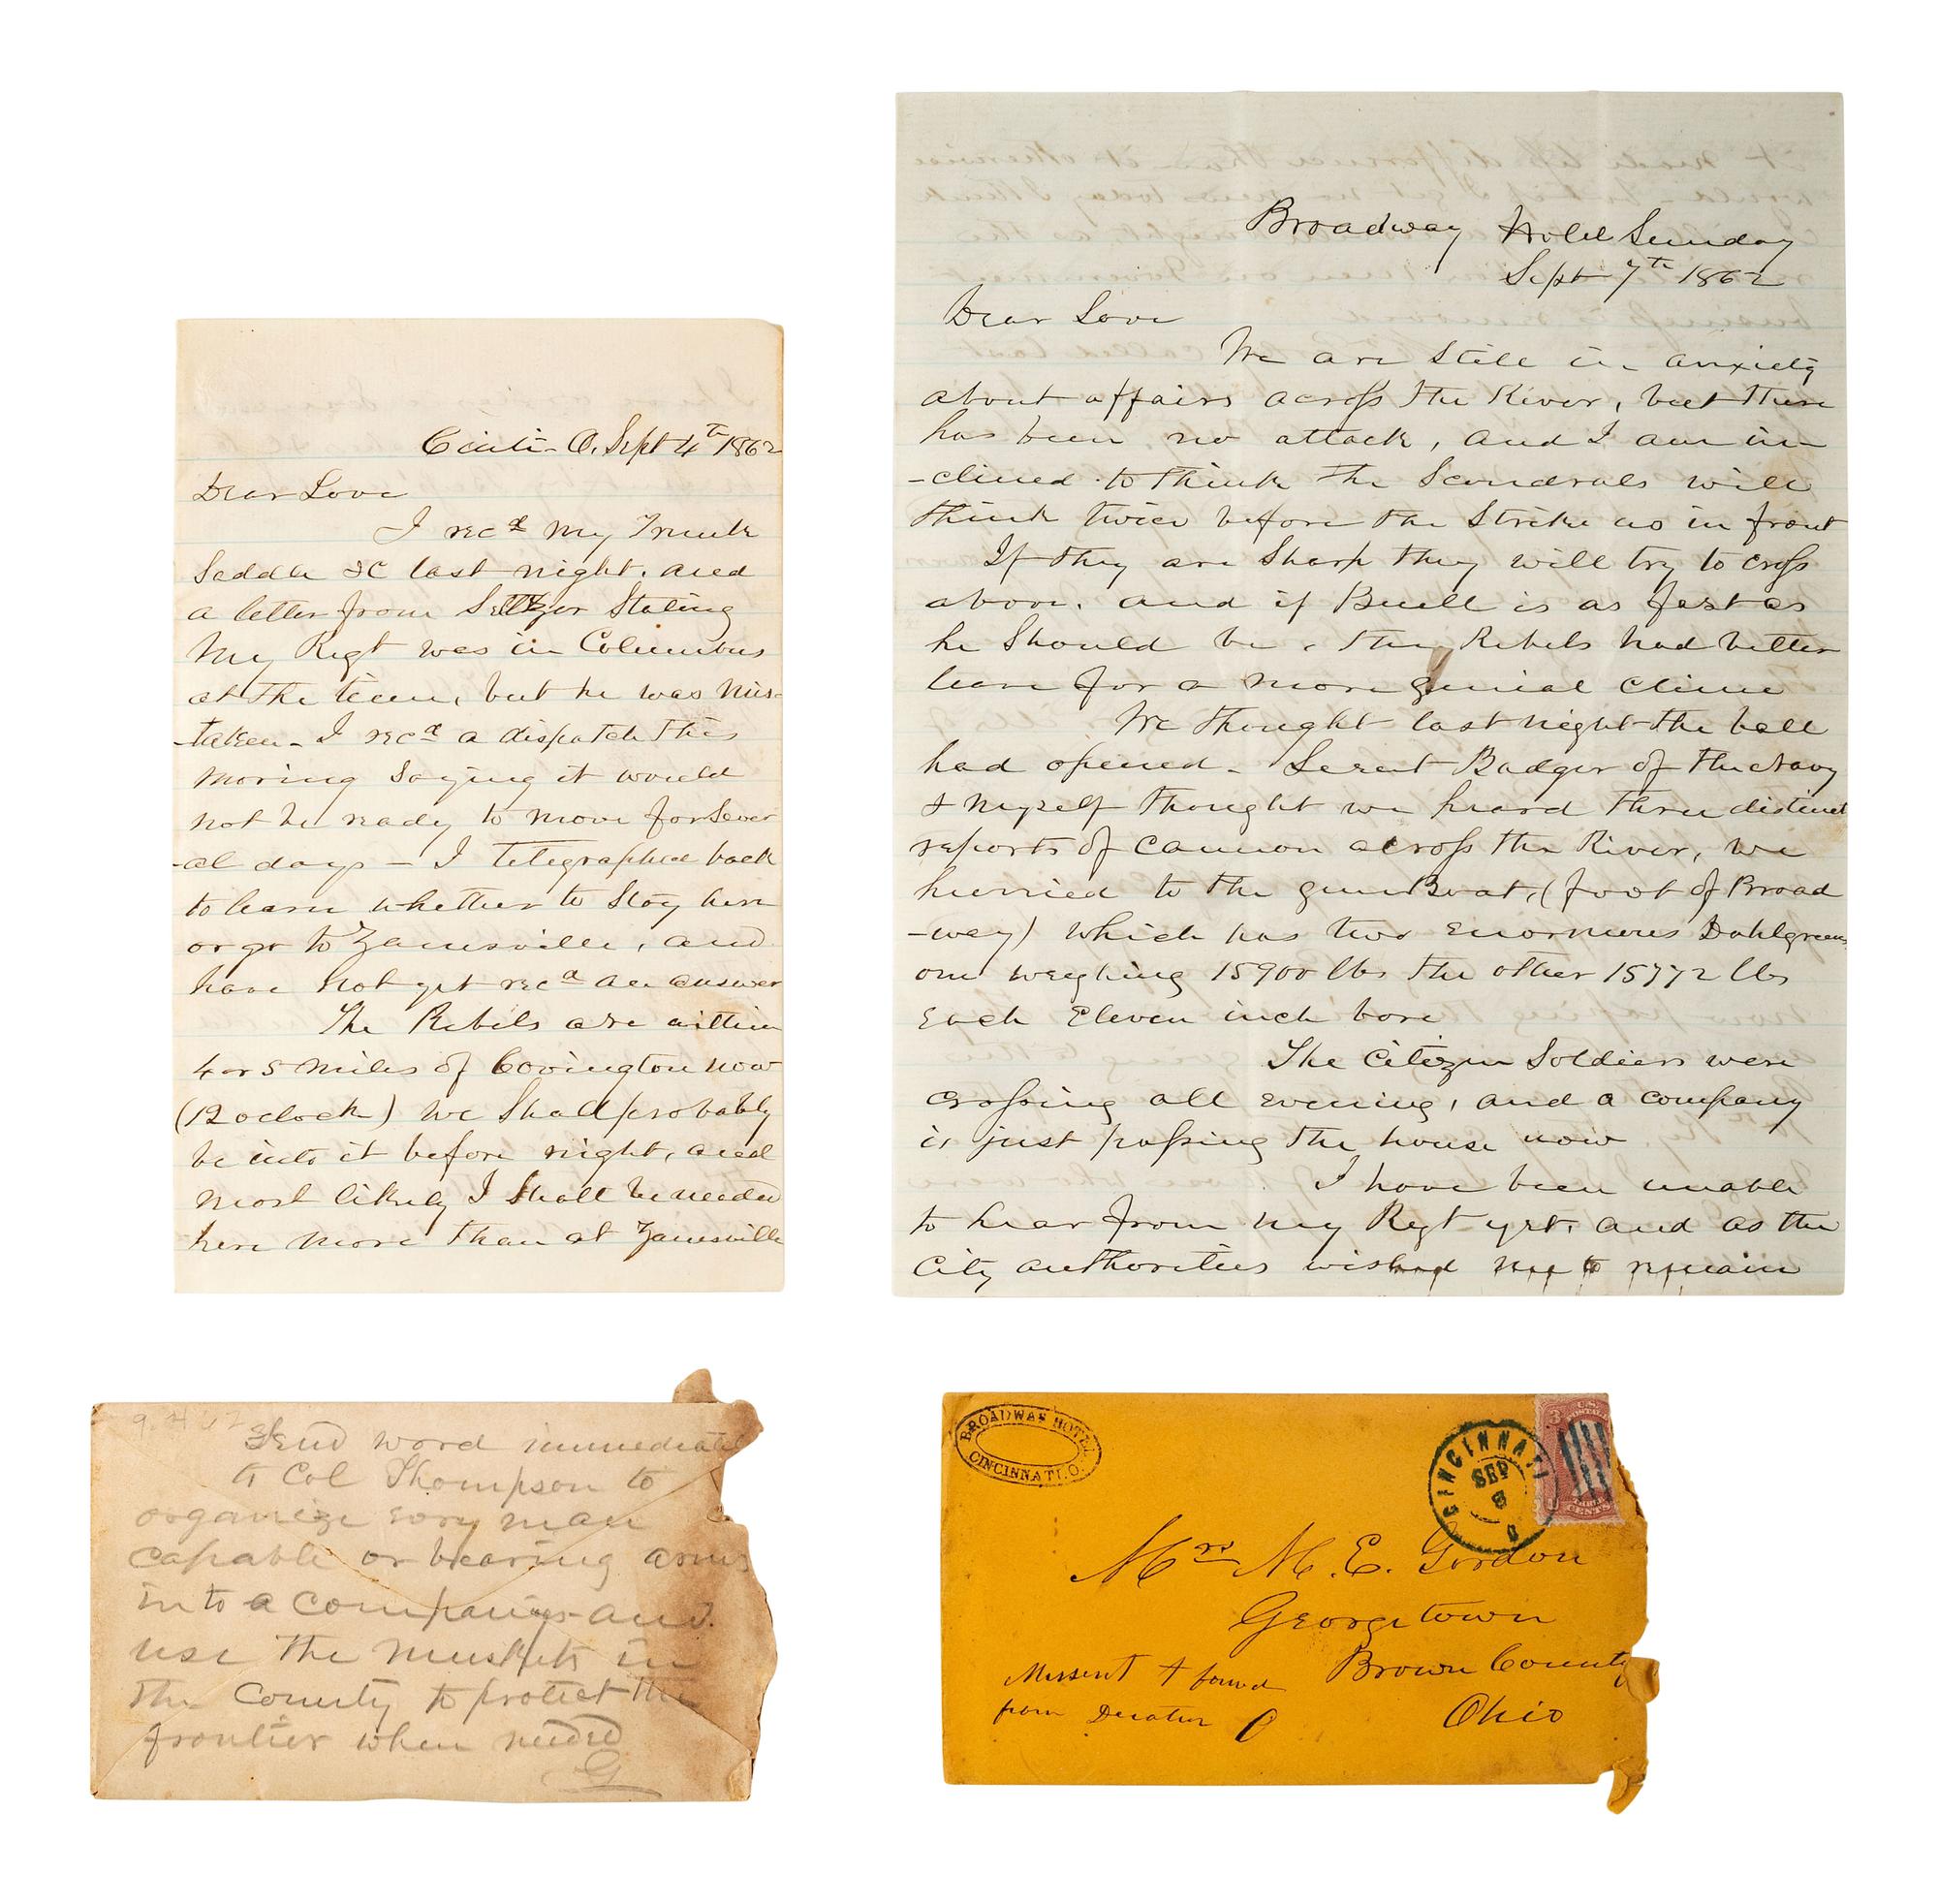 Cinti- O, Sept 4th 1862
Dear Love
I recd my Trunk
Saddle &C last night. and
a letter from Seltzer Stating
My Regt was in Columbus
at the time, but he was mis-
-taken - I recd a dispatch this
moring Saying it would
not be ready to move for Sever
-al days - I telegraphed back
to learn whether to Stay here
or go to Zanesville, and
have not yet recd an answer
The Rebels are within
4 or 5 miles of Covington now
(12 oclock) we Shall probably
be into it before night, and
most likely I Shall be needed
here more than at Zanesville
Broadway Hotel Sunday
Sept 7th 1862
Dear Love
We are Still in anxiety
about affairs across the River, but there
has been no attack, and I am in-
-clined to think the Scoundrals will
think twice before the Strike us in front
If they are Sharp they will try to cross
above. and if Buell is as fast as
he Should be, the Rebels had better
leave for a more genial clime
We thought last night the ball
had opened - Lieut Badger of the Navy
& myself thought we heard three distinct
reports of Cannon across the River, we
hurried to the gun Boat, (foot of Broad
-way) which has two Enormous Dahlgreens
one weighing 15900 lbs the other 15772 lbs
Each Eleven inch bore
The Citizen Soldiers were
crossing all evening, and a company
is just passing the house now
I have been unable
to hear from my Regt yet. and as the
City authorities wished me to remain
Send word immediately
to Col Thompson to
organize every man
capable or bearing arms
into a companies and
use the muskets in
the County to protect the
frontier when needed
G
BROADWAY HOTEL
CINCINNATI.O.
CINCINNATI
SEP
8
U.S.
POSTAGE
3
THREE
CENTS
Mrs M. E. Gordon
Georgetown
Brown County
Ohio
Missent & forwd
from Decatur O